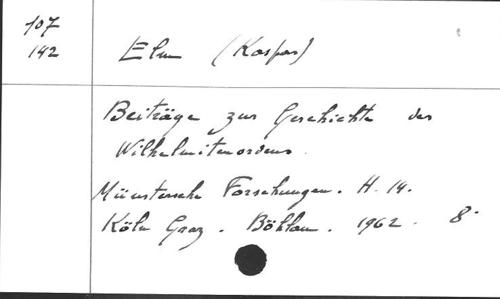 107
142
Elm (Kaspar)
Beiträge zur Geschichte des
Wilhelmitenordens.
Münstersche Forschungen. H. 14.
Köln Graz. Böhlau. 1962. 8°